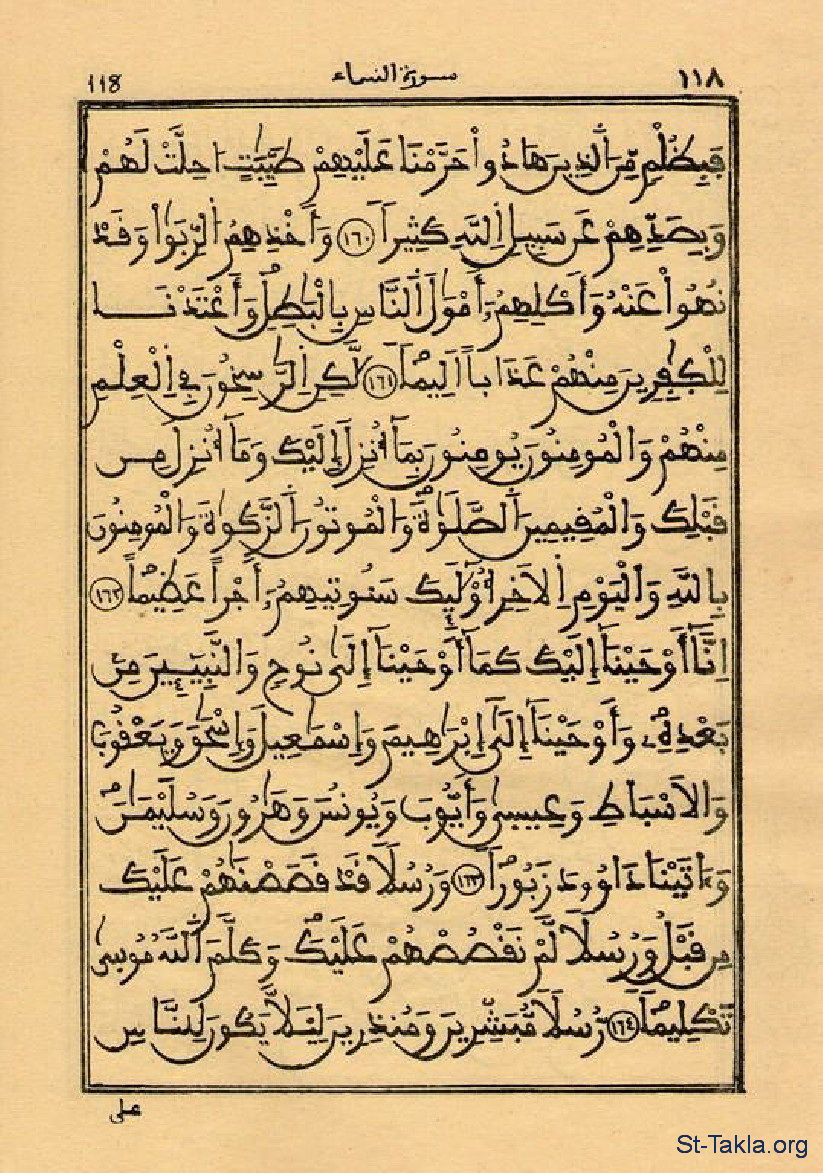 118 سورة النساء ١١٨
فَبِظُلْمٍ مِّنَ ٱلذِينَ هَادُواْ حَرَّمْنَا عَلَيْهِمْ طَيِّبَٰتٍ ا۟حِلَّتْ لَهُمْ
وَبِصَدِّهِمْ عَن سَبِيلِ اِ۬للَّهِ كَثِيراً ١٦٠ وَأَخْذِهِمُ اُ۬لرِّبَوٰاْ وَقَدْ
نُهُواْ عَنْهُ وَأَكْلِهِمُۥٓ أَمْوَٰلَ اَ۬لنَّاسِ بِالْبَٰطِلِ وَأَعْتَدْنَا
لِلْكَٰفِرِينَ مِنْهُمْ عَذَاباً اَلِيماً ١٦١ لَّٰكِنِ اِ۬لرَّٰسِخُونَ فِے اِ۬لْعِلْمِ
مِنْهُمْ وَالْمُومِنُونَ يُومِنُونَ بِمَآ أُنزِلَ إِلَيْكَ وَمَآ أُنزِلَ مِن
قَبْلِكَ وَالْمُقِيمِينَ اَ۬لصَّلَوٰةَ وَالْمُوتُونَ اَ۬لزَّكَوٰةَ وَالْمُومِنُونَ
بِاللَّهِ وَالْيَوْمِ اِ۬لَاخِرِ أُوْلَٰٓئِكَ سَنُوتِيهِمُۥٓ أَجْراً عَظِيماً ١٦٢
إِنَّآ أَوْحَيْنَآ إِلَيْكَ كَمَآ أَوْحَيْنَآ إِلَىٰ نُوحٍ وَالنَّبِيٓـِٕينَ مِنۢ
بَعْدِهِۦ وَأَوْحَيْنَآ إِلَىٰٓ إِبْرَٰهِيمَ وَإِسْمَٰعِيلَ وَإِسْحَٰقَ وَيَعْقُوبَ
وَالَاسْبَاطِ وَعِيسىٰ وَأَيُّوبَ وَيُونُسَ وَهَٰرُونَ وَسُلَيْمَٰنَ
وَءَاتَيْنَا دَاوُۥدَ زَبُوراً ١٦٣ وَرُسُلاً قَدْ قَصَصْنَٰهُمْ عَلَيْكَ
مِن قَبْلُ وَرُسُلاً لَّمْ نَقْصُصْهُمْ عَلَيْكَ وَكَلَّمَ اَ۬للَّهُ مُوسىٰ
تَكْلِيماً ١٦٤ رُّسُلاً مُّبَشِّرِينَ وَمُنذِرِينَ لِيَ۬لَّا يَكُونَ لِلنَّاسِ
على
St-Takla.org